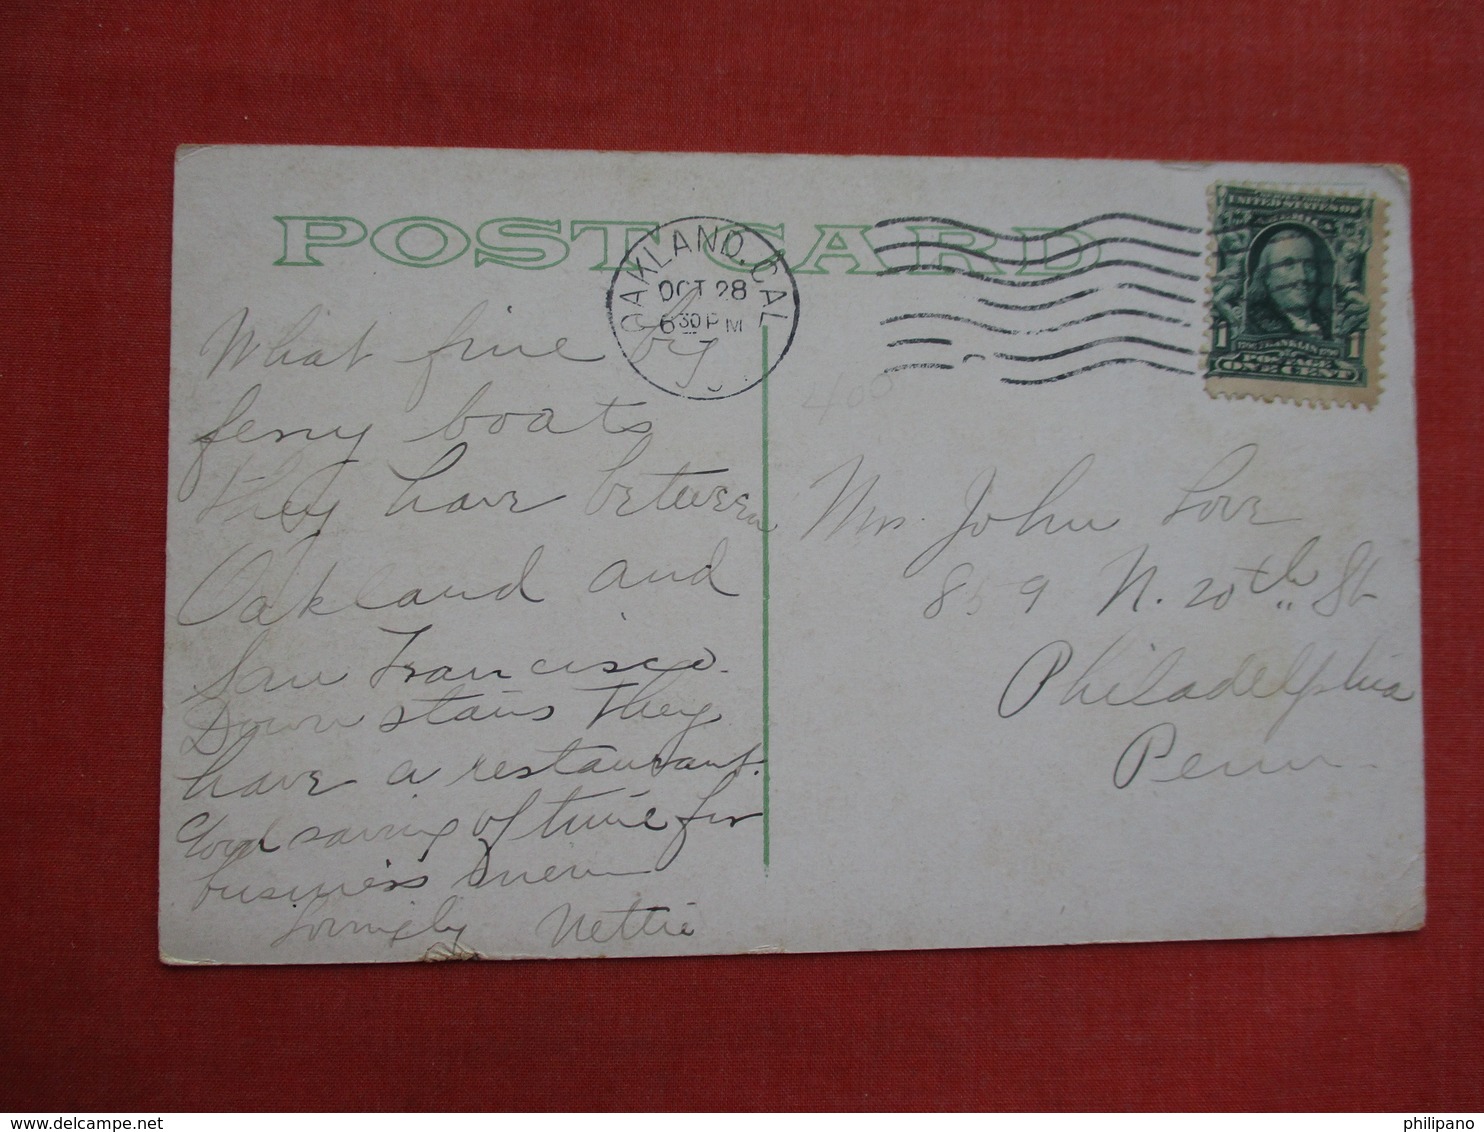 POST CARD
OAKLAND, CAL
OCT 28
6 30 P M
UNITED STATES OF
AMERICA
1 FRANKLIN 1
POSTAGE
ONE CENT
400
What fine big
ferry boats
they have between
Oakland and
San Francisco.
Down stairs they
have a restaurant.
Good saving of time for
business men
Lovingly Nettie
Mrs. John Love
859 N. 20th St
Philadelphia
Penn.
philipano